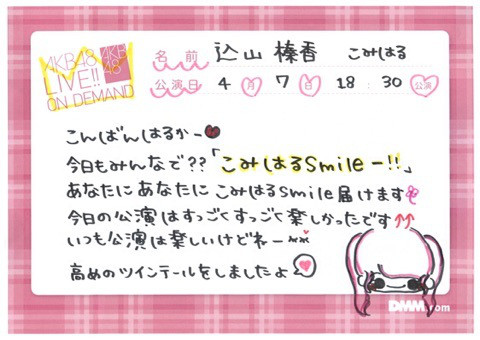 AKB48
LIVE!!
ON DEMAND
AKB
48
名前 込山 榛香 こみはる
公演日 4月7日 18:30 公演
こんばんはるかー
今日もみんなで??「こみはるSmileー!!」
あなたにあなたに こみはるsmile届けます
今日の公演はすっごくすっごく楽しかったです↑↑
いつも公演は楽しいけどねー
高めのツインテールをしましたよ
DMM.com